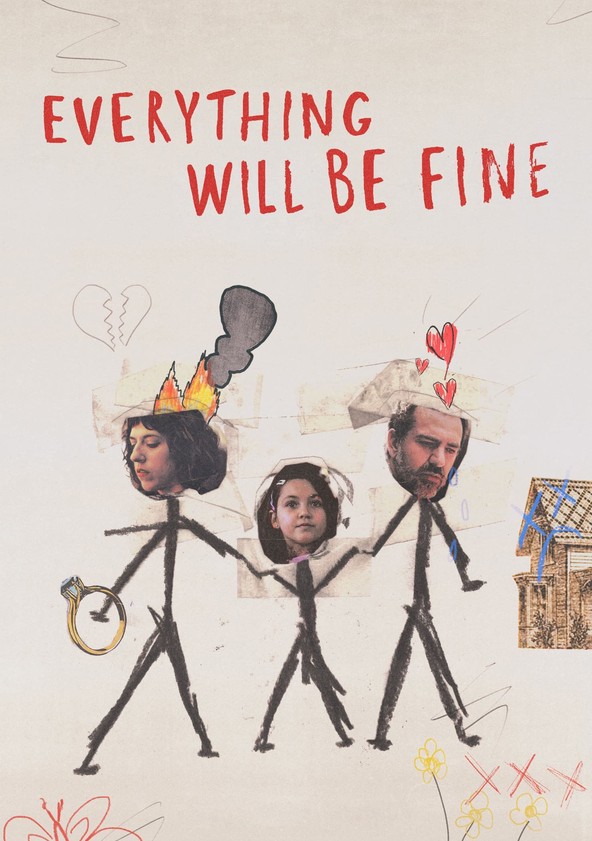 EVERYTHING
WILL BE FINE
XXX